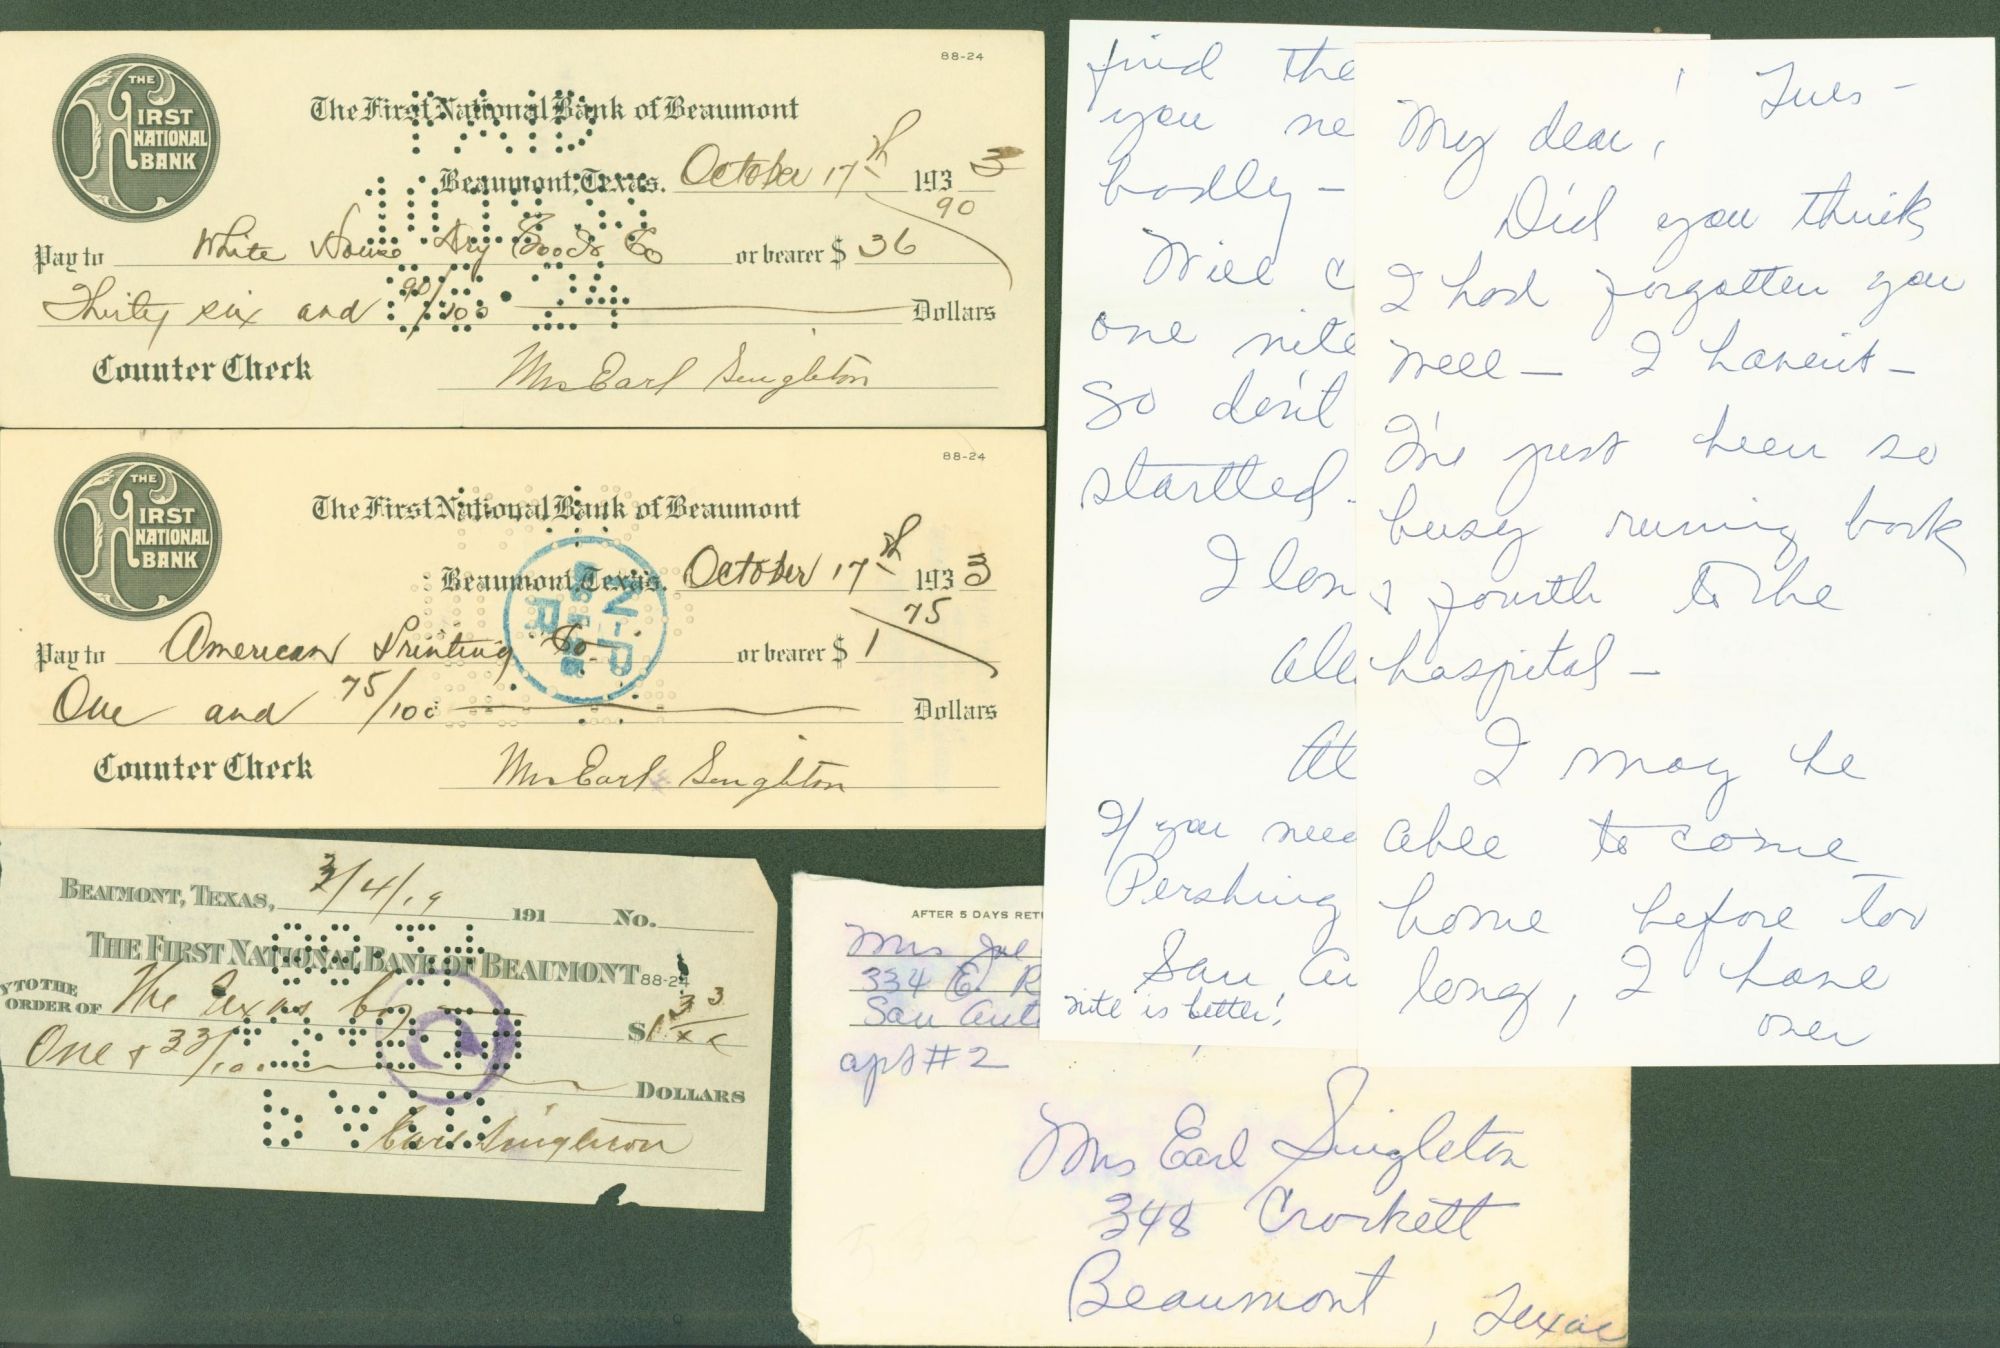 88-24
THE FIRST NATIONAL BANK
The First National Bank of Beaumont
PAID
Beaumont, Texas. October 17th 1933
Pay to White House Dry Goods Co or bearer $ 36 90
88-24
Thirty six and 90/100 Dollars
Counter Check Mrs Earl Singleton
88-24
THE FIRST NATIONAL BANK
The First National Bank of Beaumont
Beaumont, Texas. October 17th 1933
Pay to American Printing Co. or bearer $ 1 75
One and 75/100 Dollars
Counter Check Mrs Earl Singleton
BEAUMONT, TEXAS, 3/4/19 191 No.
THE FIRST NATIONAL BANK OF BEAUMONT 88-24
Y TO THE
ORDER OF The Texas Co $1 33
One & 33/100 DOLLARS
PAID
Earl Singleton
find the
you ne
badly -
Will c
one nite
so don't
startled -
I lon
All
At
If you need
Pershing
San An
nite is better!
Tues -
My dear,
Did you think
I had forgotten you
Well - I haven't -
I've just been so
busy runing back
& fourth to the
hospital -
I may be
able to come
home before too
long, I have
over
AFTER 5 DAYS RETU
Mrs Joe
334 E. R
San Anto
apt #2
Mrs Earl Singleton
348 Crockett
Beaumont, Texas